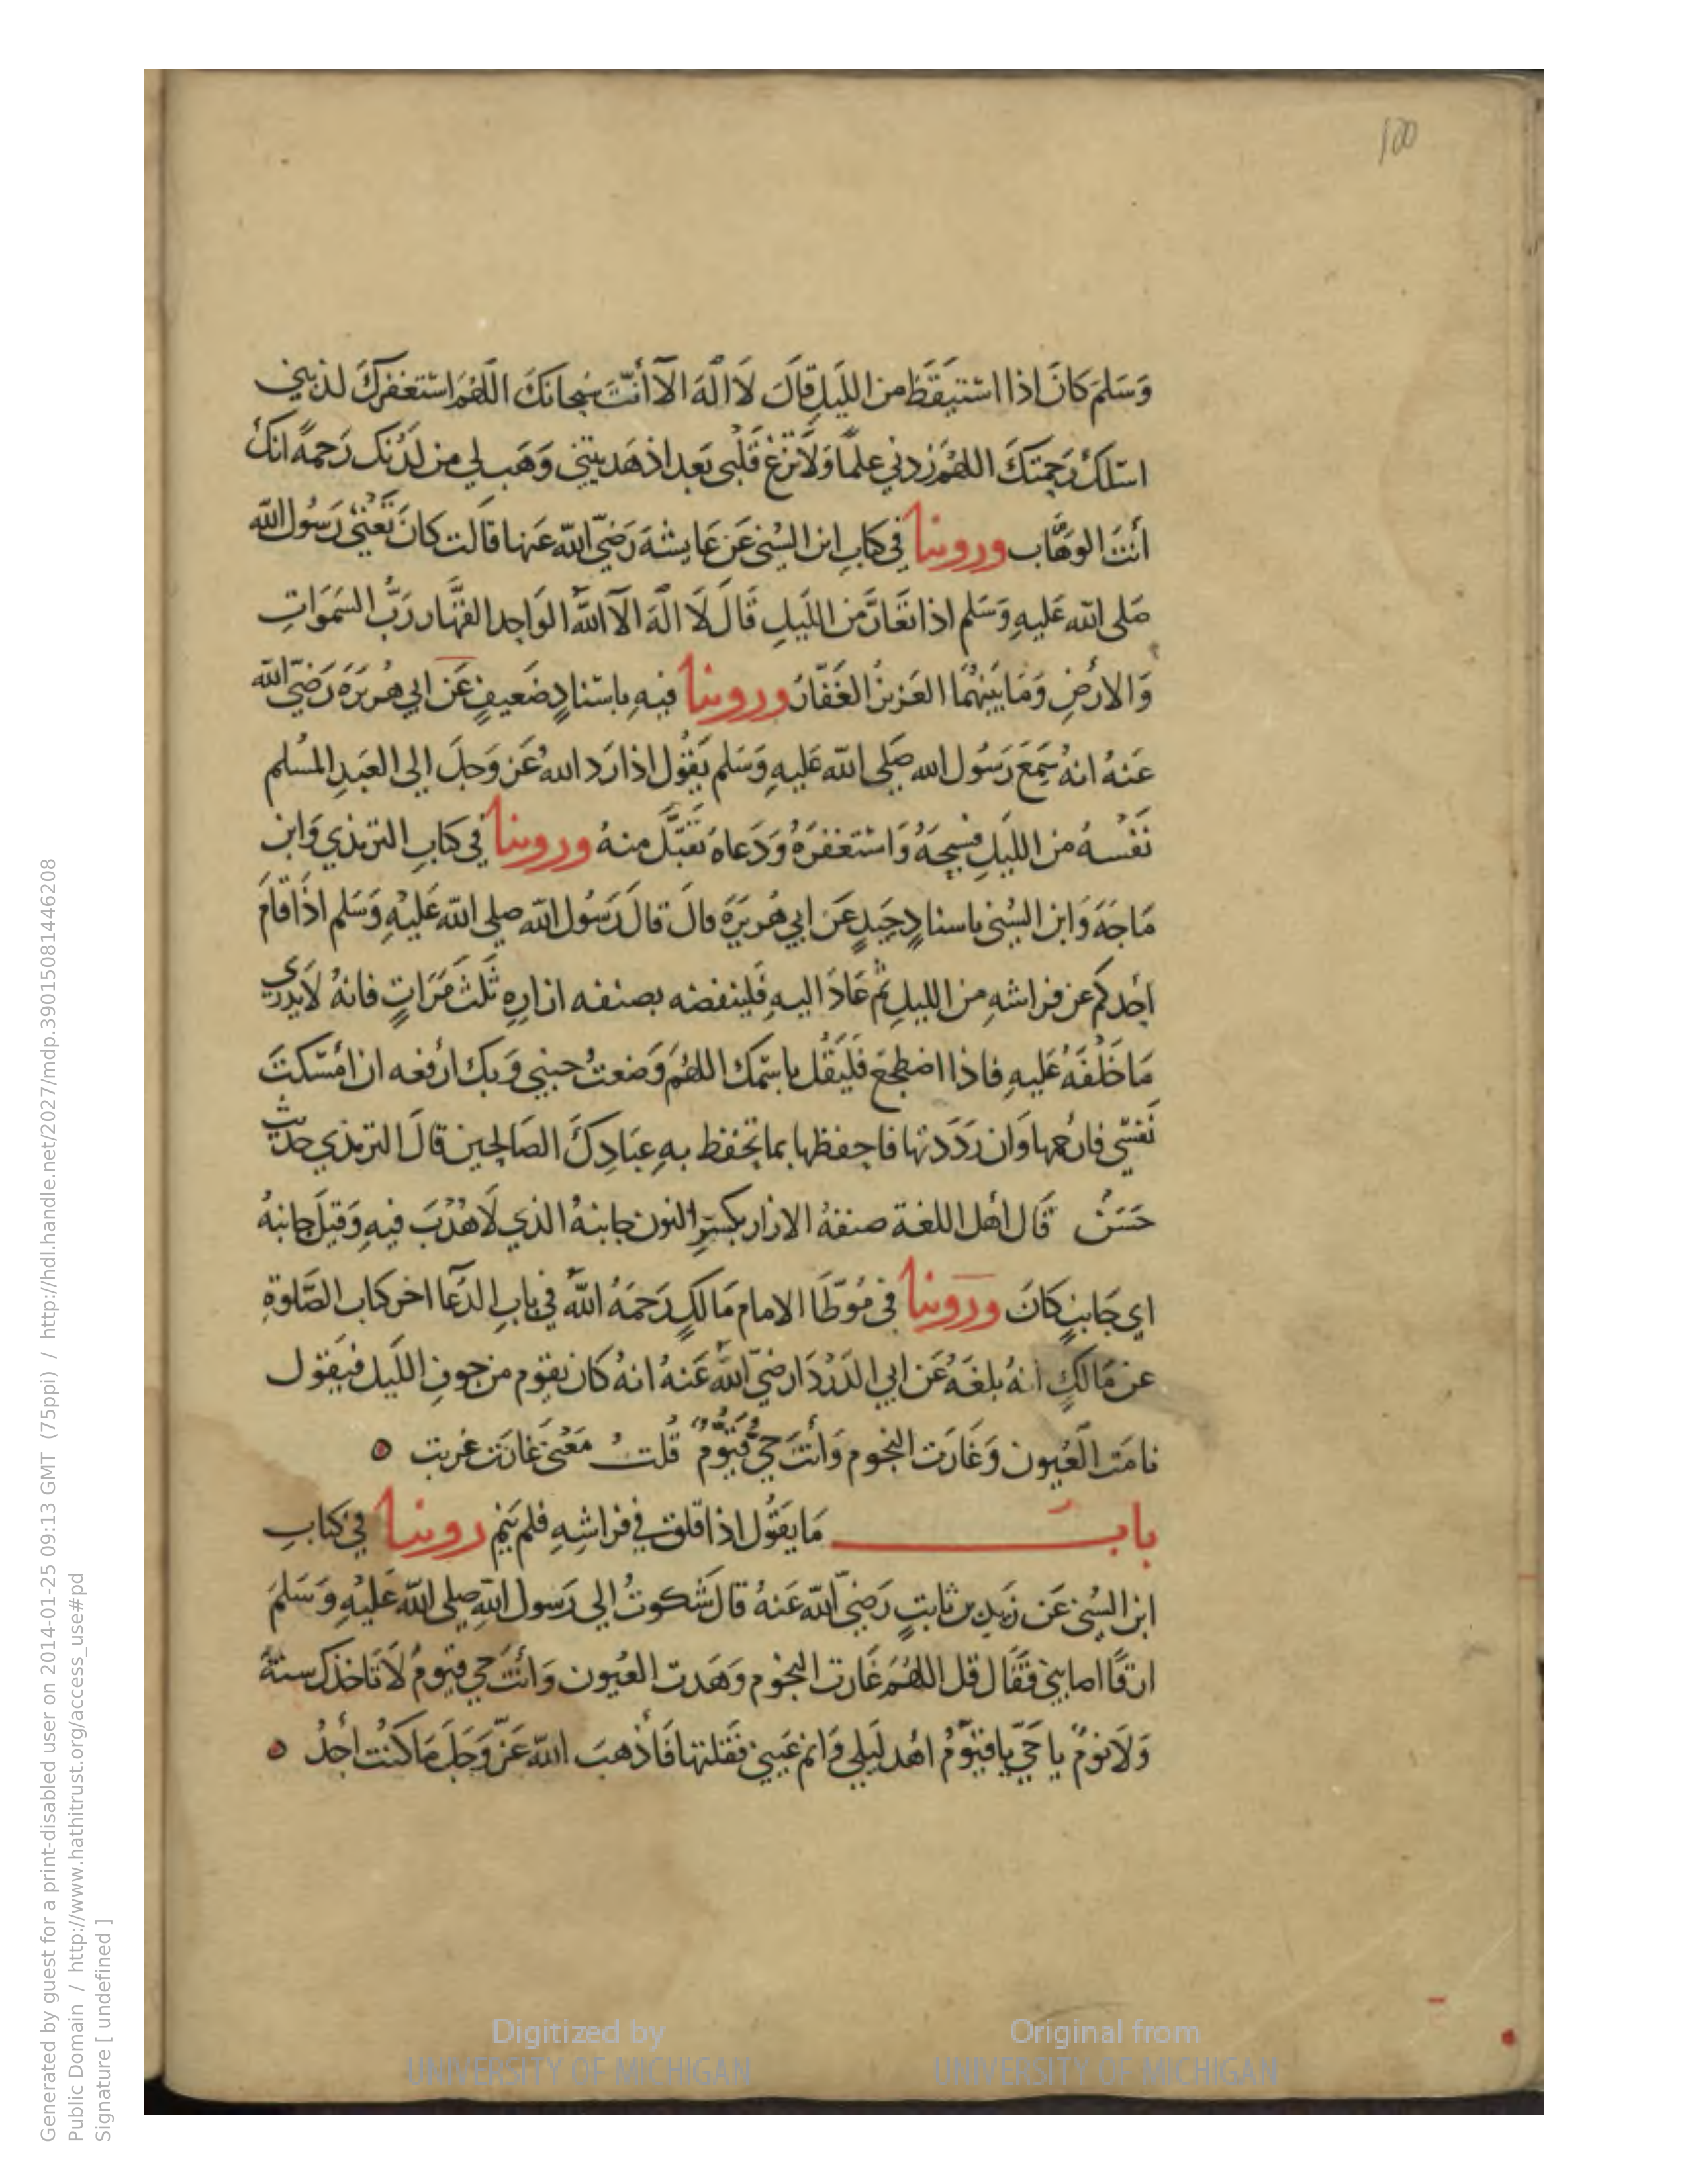 100
وَسَلمَ كانَ اذا استيقَظَ من الليلِ قالَ لا اله الا أنتَ سبحانكَ اللهُمَ استغفركَ لذنبي
اسئلكَ رَحمتكَ اللهُمَ زدني علمًا وَلا تزغ قَلبي بَعد اذ هَديتني وَهَب لي من لدُنك رَحمةً انكَ
أنتَ الوهَّاب وروينا في كتابِ ابن السُني عَن عَايشهَ رَضيَ الله عَنها قالت كانَ تَعْني رَسُول الله
صَلى الله عَليهِ وَسَلم اذا تعَارَّ من الليلِ قَالَ لَا الهَ الا اللهُ الوَاحِد القهَّار رَبُّ السَمَوَاتِ
وَالارْضِ وَمَا بَينهُما العَزيزُ الغَفّارُ وروينا فيهِ باسنادٍ ضَعيفٍ عَن ابي هُريرَة رَضيَ الله
عَنهُ انهُ سَمعَ رَسُول الله صَلى الله عَليهِ وَسَلم يَقُول اذا رَد اللهُ عَز وَجلَ الى العَبدِ المُسْلم
نَفْسهُ من الليلِ فسبحهُ وَاستغفرَهُ وَدَعاهُ تقبَّلَ منهُ وروينا في كتابِ الترمذي وَابن
مَاجَهَ وَابن السُني باسنادٍ جَيدٍ عَن ابي هُريرَةَ قالَ قالَ رَسُول الله صلى الله عَليْهِ وَسَلم اذَا قامَ
أحدكم عن فراشهِ من الليلِ ثم عَادَ اليهِ فَلينفضه بصنفه ازارهِ ثَلثَ مَرَاتٍ فانهُ لا يَدري
مَا خَلَفَهُ عَليهِ فاذا اضطجعَ فَليَقُل باسْمكَ اللهُمَ وَضعتُ جنبي وَبك ارفعه ان امْسَكتَ
نَفسي فارحمها وَان رَدَدتها فاحفظها بما تحفظ بهِ عبَادكَ الصَالحين قالَ الترمذي حديث
حَسَنٌ قالَ اهل اللغة صنفهُ الازار بكسرِ النون جانبهُ الذي لَا هُدْبَ فيهِ وَقيلَ جانبهُ
اي جَانبٍ كانَ وروينا في مُوَطّأ الامام مَالكٍ رَحمَهُ اللهُ في بابِ الدُعَآ اخر كتاب الصَّلوةِ
عن مَالكٍ انهُ بلغَهُ عَن ابي الدَرْدَا رضيَ اللهُ عَنهُ انهُ كان يقوم من جوفِ الليل فيَقول
نامَت العُيون وَغَارَت النجوم وَأنتَ حيٌّ قَيُّومٌ قُلتُ مَعْنى غارَت غربت
بابُ مَا يَقُول اذا قلق في فراشِهِ فلم ينم روينا في كتابِ
ابن السُني عَن زَيد بن ثابتٍ رَضيَ الله عَنهُ قال شَكوتُ الى رَسول اللهِ صلى الله عَليْهِ وَسَلمَ
ارقًا اصابني فقَال قل اللهُمَ غَارت النجوم وَهَدت العُيون وَأنتَ حي قيوم لَا تَاخذك سنةٌ
وَلَا نومٌ يا حَيّ يا قيُّومُ اهد لَيلي وَانم عَيني فقلتها فَأذهبَ الله عَزّ وَجَلَ مَا كنتُ أجدُ
Generated by guest for a print-disabled user on 2014-01-25 09:13 GMT (75ppi) / http://hdl.handle.net/2027/mdp.39015081446208
Public Domain / http://www.hathitrust.org/access_use#pd
Signature [ undefined ]
Digitized by
UNIVERSITY OF MICHIGAN
Original from
UNIVERSITY OF MICHIGAN